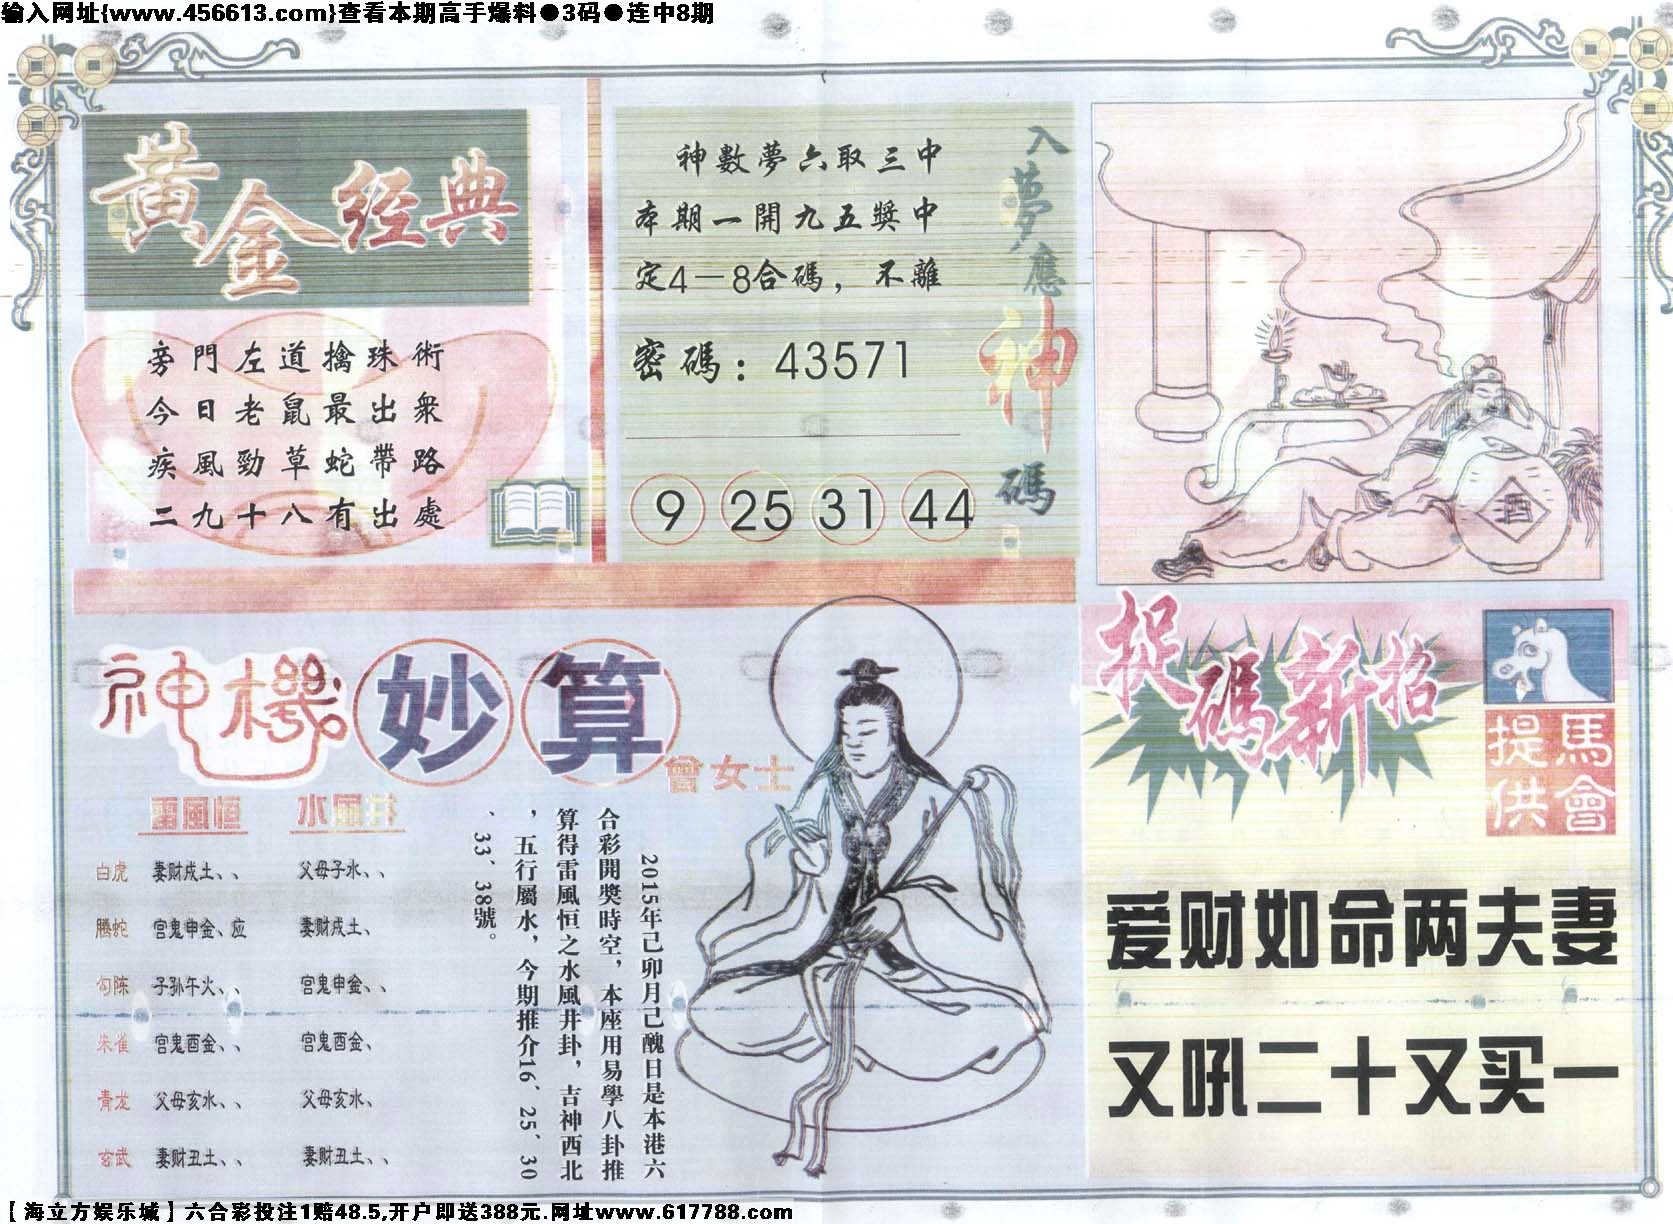 输入网址{www.456613.com}查看本期高手爆料●3码●连中8期
黄金经典
旁門左道擒珠術
今日老鼠最出衆
疾風勁草蛇帶路
二九十八有出處
入夢應神碼
神數夢六取三中
本期一開九五獎中
定4－8合碼，不離
密碼：43571
9 25 31 44
酒
神機妙算
曾女士
雷風恒 水風井
白虎 妻财戌土、、 父母子水、、
腾蛇 宫鬼申金、应 妻财戌土、
勾陈 子孙午火、、 宫鬼申金、、
朱雀 宫鬼酉金、、 宫鬼酉金、
青龙 父母亥水、、 父母亥水、
玄武 妻财丑土、、 妻财丑土、、
2015年己卯月己醜日是本港六
合彩開獎時空，本座用易學八卦推
算得雷風恒之水風井卦，吉神西北
，五行屬水，今期推介16、25、30
、33、38號。
捉碼新招
馬會
提供
爱财如命两夫妻
又吼二十又买一
【海立方娱乐城】六合彩投注1赔48.5,开户即送388元.网址www.617788.com